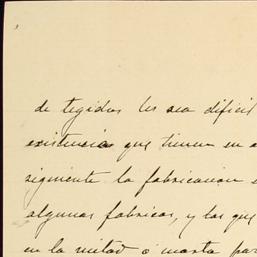 de tegidos les sea dificil
existencia que tienen en
siguiente la fabricacion
algunas fabricas, y las que
en la mitad o cuarta par